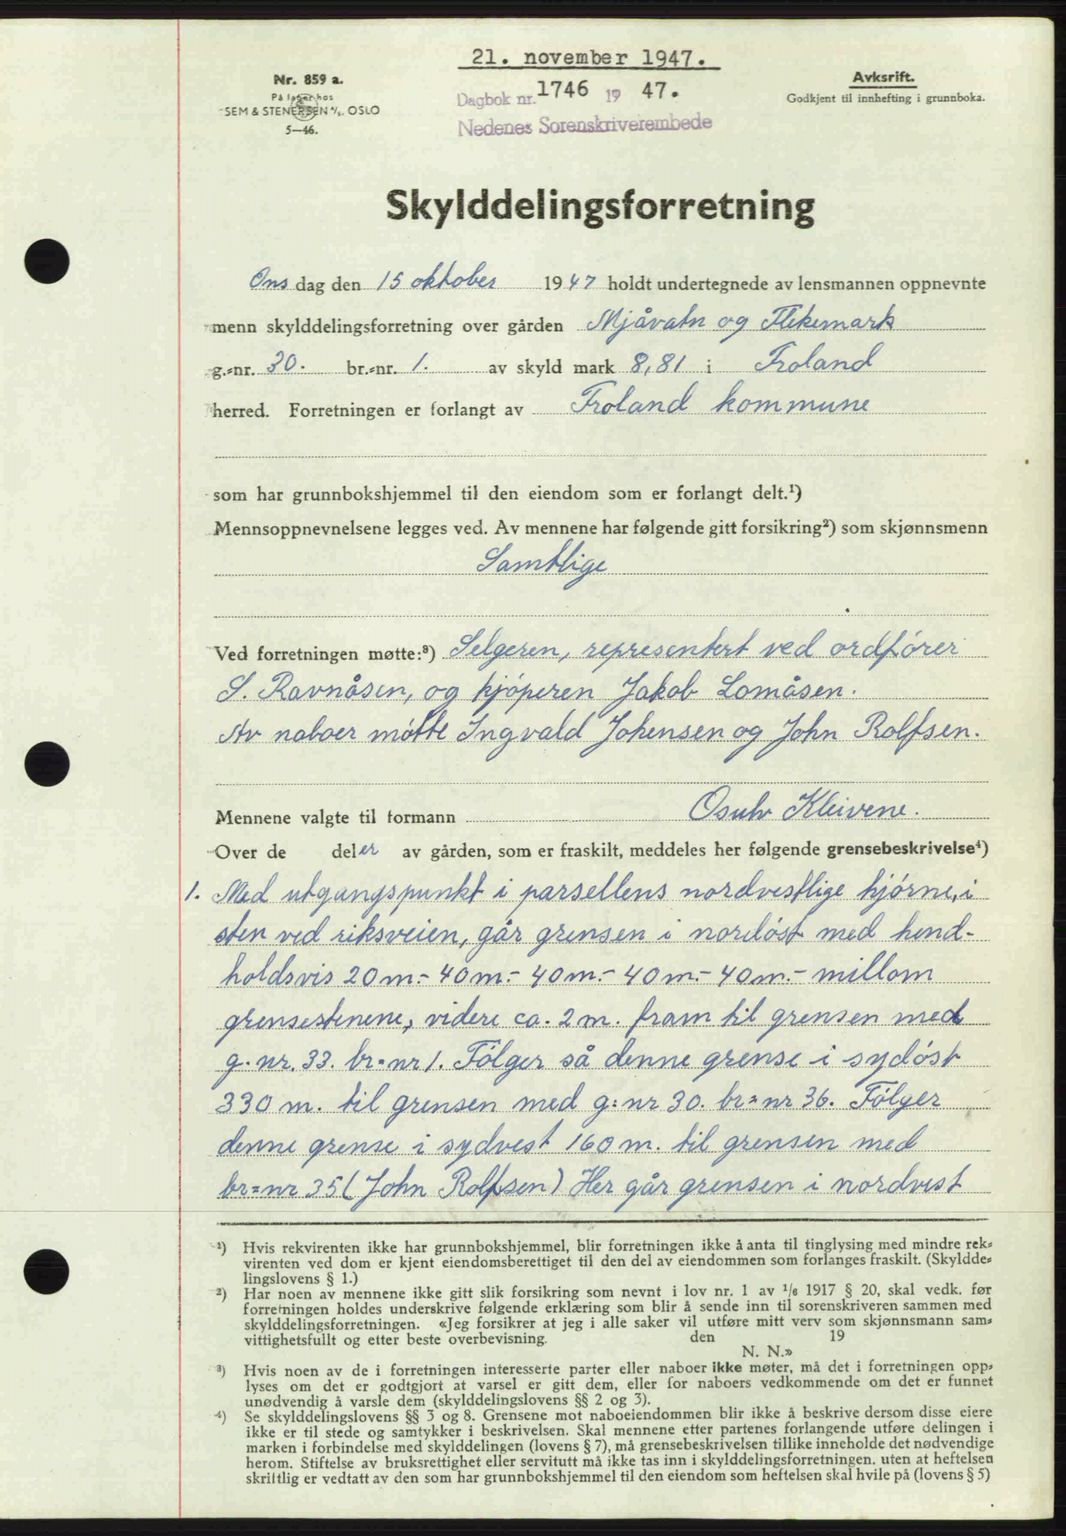 21. november 1947.
Nr. 859 a.
På lager hos
SEM & STENERSEN A/S. OSLO
5—46.
Dagbok nr. 1746 19 47.
Nedenes Sorenskriverembede
Avksrift.
Godkjent til innhefting i grunnboka.
Skylddelingsforretning
Ons dag den 15 oktober 1947 holdt undertegnede av lensmannen oppnevnte
menn skylddelingsforretning over gården Mjåvatn og Flekemark
g.-nr. 30. br.-nr. 1. av skyld mark 8,81 i Froland
herred. Forretningen er forlangt av Froland kommune
som har grunnbokshjemmel til den eiendom som er forlangt delt.¹)
Mennsoppnevnelsene legges ved. Av mennene har følgende gitt forsikring²) som skjønnsmenn
Samtlige
Ved forretningen møtte:³) Selgeren, representert ved ordfører
S. Ravnåsen, og kjøperen Jakob Lomåsen.
Av naboer møtte Ingvald Johensen og John Rolfsen.
Mennene valgte til formann Osuhv Kleivene.
Over de deler av gården, som er fraskilt, meddeles her følgende grensebeskrivelse⁴)
1. Med utgangspunkt i parsellens nordvestlige hjørne, i
sten ved riksveien, går grensen i nordøst med hend-
holdsvis 20 m.- 40 m.- 40 m.- 40 m.- 40 m.- millom
grensestenene, videre ca. 2 m. fram til grensen med
g.nr. 33. br=nr 1. Følger så denne grense i sydøst
330 m. til grensen med g:nr 30. br=nr 36. Følger
denne grense i sydvest 160 m. til grensen med
br=nr 35 (John Rolfsen) Her går grensen i nordvest
¹) Hvis rekvirenten ikke har grunnbokshjemmel, blir forretningen ikke å anta til tinglysing med mindre rek-
virenten ved dom er kjent eiendomsberettiget til den del av eiendommen som forlanges fraskilt. (Skyldde-
lingslovens § 1.)
²) Har noen av mennene ikke gitt slik forsikring som nevnt i lov nr. 1 av 1/6 1917 § 20, skal vedk. før
forretningen holdes underskrive følgende erklæring som blir å sende inn til sorenskriveren sammen med
skylddelingsforretningen. «Jeg forsikrer at jeg i alle saker vil utføre mitt verv som skjønnsmann sam-
vittighetsfullt og etter beste overbevisning. den 19
N. N.»
³) Hvis noen av de i forretningen interesserte parter eller naboer ikke møter, må det i forretningen opp-
lyses om det er godtgjort at varsel er gitt dem, eller for naboers vedkommende om det er funnet
unødvendig å varsle dem (skylddelingslovens §§ 2 og 3).
⁴) Se skylddelingslovens §§ 3 og 8. Grensene mot naboeiendommen blir ikke å beskrive dersom disse eiere
ikke er til stede og samtykker i beskrivelsen. Skal mennene etter partenes forlangende utføre delingen i
marken i forbindelse med skylddelingen (lovens § 7), må grensebeskrivelsen tillike inneholde det nødvendige
herom. Stiftelse av bruksrettighet eller servitutt må ikke tas inn i skylddelingsforretningen. uten at heftelsen
skriftlig er vedtatt av den som har grunnbokshjemmel til den eiendom som heftelsen skal hvile på (lovens § 5)